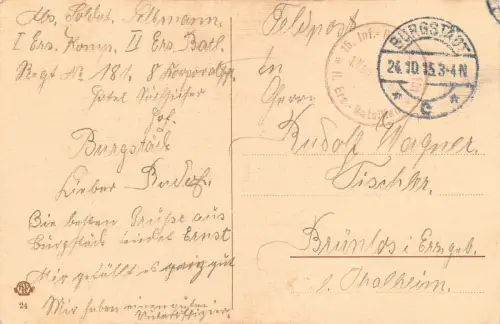 Abs. Soldat
I Ers. Komp. II Ers. Batl.
Regt No 181. 8 Korporalsch.
Hotel
Burgstädt
Lieber
Die besten Grüße aus
Burgstädt sendet Ernst
Mir gefällt es ganz gut
Wir haben einen guten
Unteroffizier.
24
Feldpost
BURGSTÄDT
24.10.15.3-4N
* c *
An
Herrn
Rudolf Wagner.
Tischler
Brünlos i Erzgeb.
b. Thalheim.